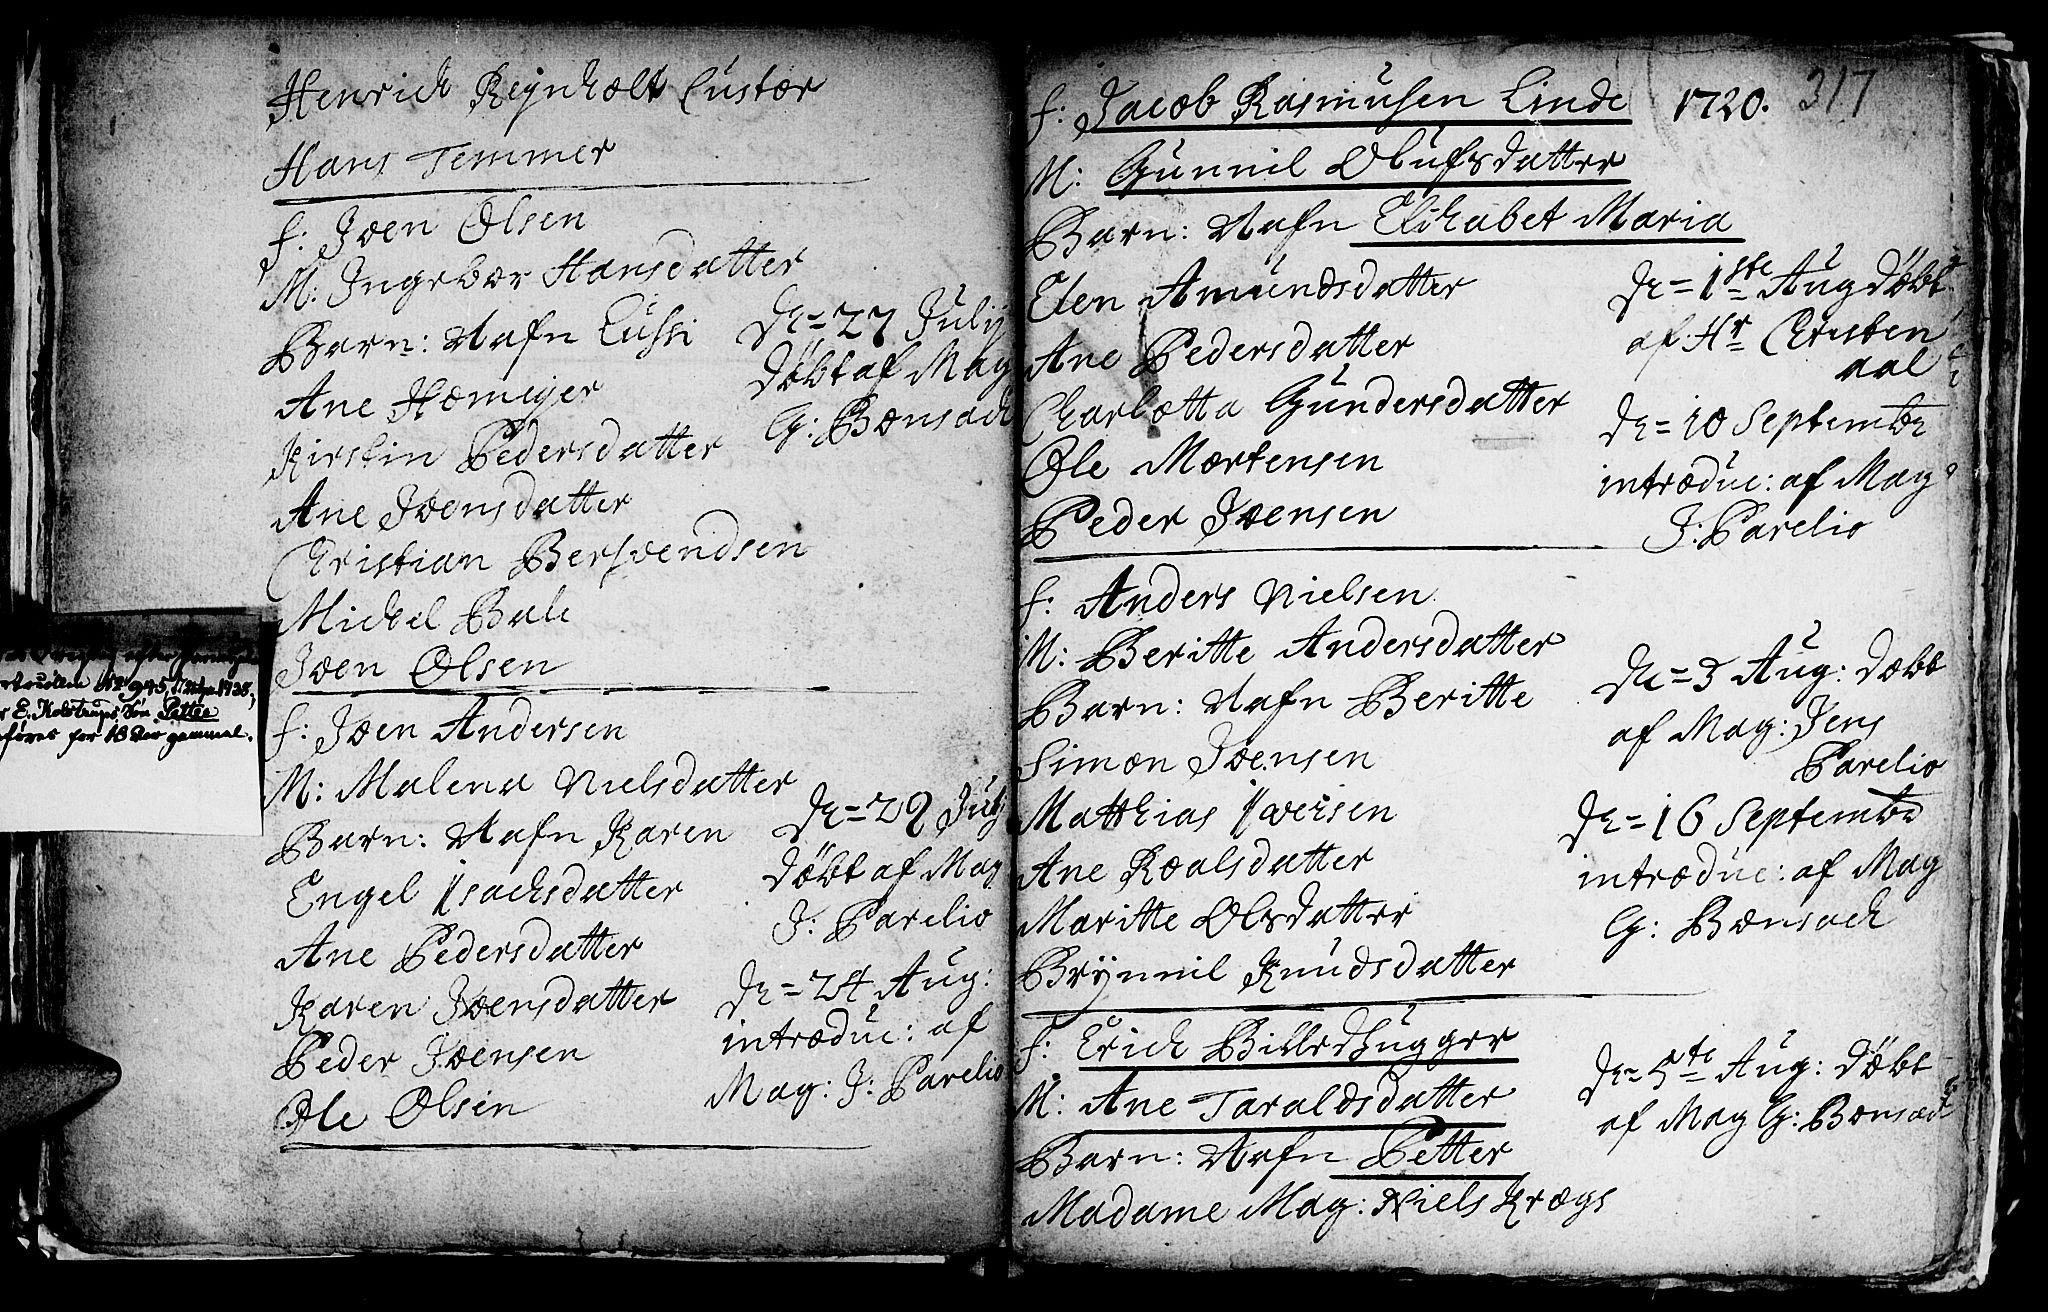 Henrich Reÿnholt Custor
Hans Temmer
f: Joen Olsen
M: Ingebor Hansdatter
Barn: Nafn Lussi
Ane Homeyer
Kirstin Pedersdatter
Ane Joensdatter
Christian Bersvendsen
Michel Bule
Joen Olsen
D= 27 July
döbt af Mag
G: Bonsach
f: Joen Andersen
M: Malena Nielsdatter
Barn: Nafn Karen
Engel Isachsdatter
Ane Pedersdatter
Karen Joensdatter
Peder Joensen
Ole Olsen
D= 29 July
döbt af Mag
J: Parelio
D= 24 Aug:
introduc: af
Mag: J: Parelio
945,
E. Kolstrups Søn Petter
føres for 18 Aar gammel.
1720. 317
f: Jacob Rasmusen Linde
M: Gunnil Olufsdatter
Barn: Nafn Elisabet Maria
Elen Amundsdatter
Ane Pedersdatter
Charlotta Gundersdatter
Ole Mortensen
Peder Joensen
D= 1ste Aug döbt
af Hr Christen
aal
D= 10 Septembr
introduc: af Mag
J: Parelio
f: Anders Nielsen
M: Beritte Andersdatter
Barn: Nafn Beritte
Simon Joensen
Matthias Iversen
Ane Roalsdatter
Maritte Olsdatter
Brynnil Knudsdatter
D= 3 Aug: döbt
af Mag: Jens
Parelio
D= 16 Septembr
introduc: af Mag
G: Bonsach
f: Erich Billedhugger
M: Ane Taraldsdatter
Barn: Nafn Petter
Madame Mag: Niels Krogs
D= 5te Aug: döbt
af Mag G: Bonsach